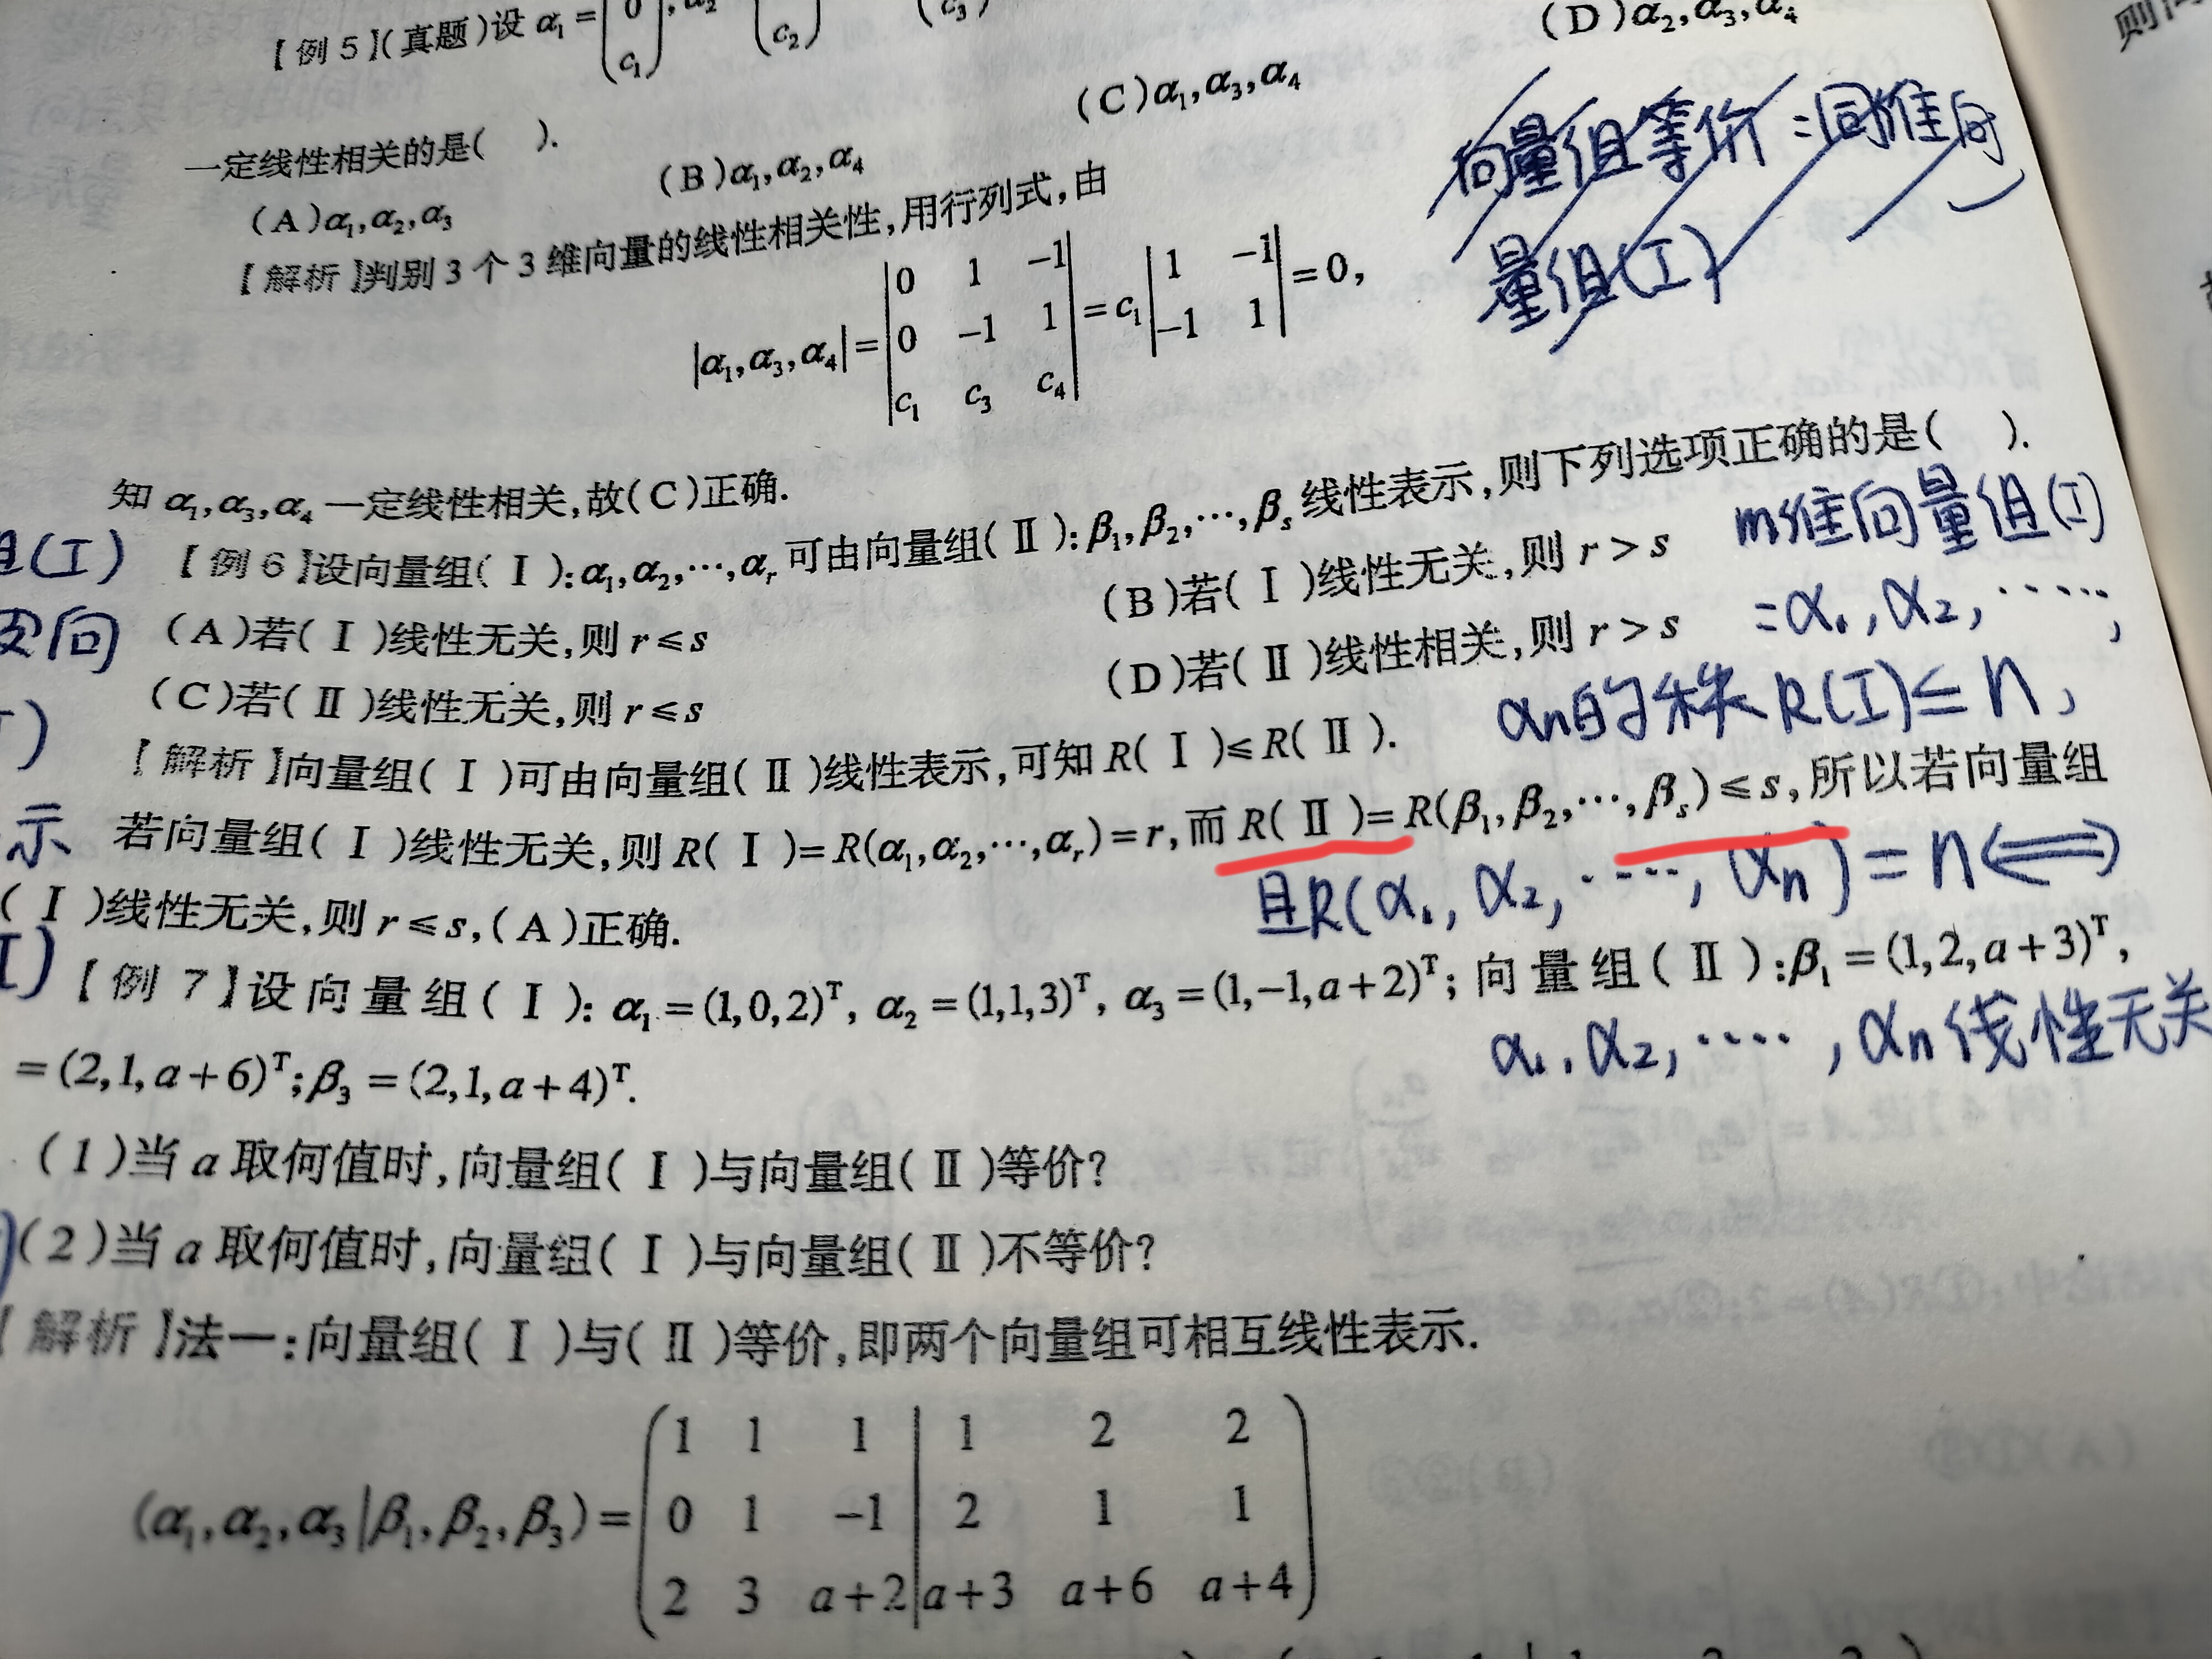 【例5】(真题)设 α₁ = (0 c₁), α₂ (c₂) (c₃)
(D)α₂,α₃,α₄
一定线性相关的是( ).
(C)α₁,α₃,α₄
(B)α₁,α₂,α₄
(A)α₁,α₂,α₃
向量组等价:同维向
量组(I)
【解析】判别3个3维向量的线性相关性,用行列式,由
|α₁,α₃,α₄| = |0 1 -1; 0 -1 1; c₁ c₃ c₄| = c₁|1 -1; -1 1| = 0,
知 α₁,α₃,α₄ 一定线性相关,故(C)正确.
【例6】设向量组(Ⅰ):α₁,α₂,⋯,αᵣ 可由向量组(Ⅱ):β₁,β₂,⋯,βₛ 线性表示,则下列选项正确的是( ).
(A)若(Ⅰ)线性无关,则 r⩽s
(B)若(Ⅰ)线性无关,则 r>s
(C)若(Ⅱ)线性无关,则 r⩽s
(D)若(Ⅱ)线性相关,则 r>s
m维向量组(I)
=α₁,α₂,⋯⋯,
αn的秩R(I)≤n,
【解析】向量组(Ⅰ)可由向量组(Ⅱ)线性表示,可知 R(Ⅰ)⩽R(Ⅱ).
若向量组(Ⅰ)线性无关,则 R(Ⅰ)=R(α₁,α₂,⋯,αᵣ)=r,而 R(Ⅱ)=R(β₁,β₂,⋯,βₛ)⩽s,所以若向量组
(Ⅰ)线性无关,则 r⩽s,(A)正确.
且R(α₁,α₂,⋯⋯,αn)=n⟺
α₁,α₂,⋯⋯,αn线性无关
组(I)
向
示
I)
【例7】设向量组(Ⅰ): α₁=(1,0,2)ᵀ, α₂=(1,1,3)ᵀ, α₃=(1,-1,a+2)ᵀ; 向量组(Ⅱ):β₁=(1,2,a+3)ᵀ,
=(2,1,a+6)ᵀ;β₃=(2,1,a+4)ᵀ.
(1)当 a 取何值时,向量组(Ⅰ)与向量组(Ⅱ)等价?
(2)当 a 取何值时,向量组(Ⅰ)与向量组(Ⅱ)不等价?
【解析】法一:向量组(Ⅰ)与(Ⅱ)等价,即两个向量组可相互线性表示.
(α₁,α₂,α₃|β₁,β₂,β₃)=
1 1 1 | 1 2 2
0 1 -1 | 2 1 1
2 3 a+2 | a+3 a+6 a+4